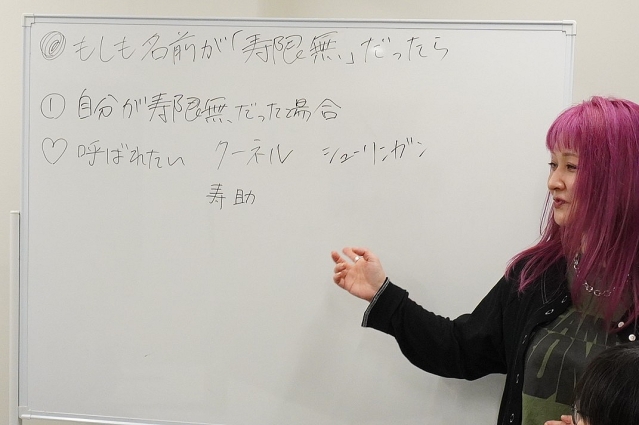 ◎ もしも名前が「寿限無」だったら
① 自分が寿限無だった場合
♡ 呼ばれたい クーネル シューリンガン
寿助